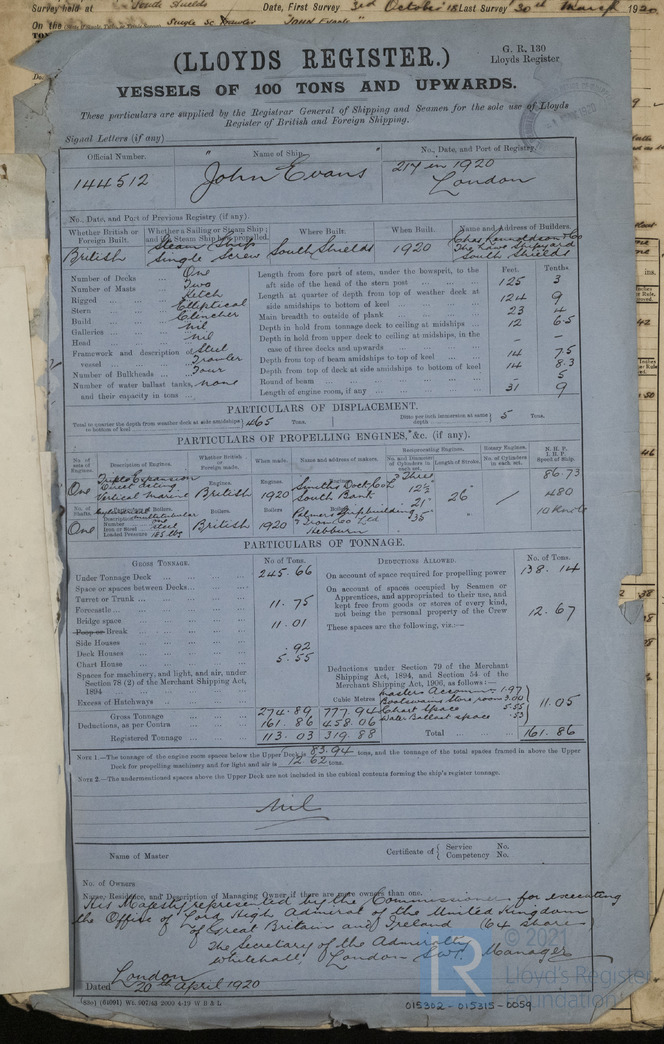 Survey held at South Shields Date, First Survey 3rd October 18 Last Survey 30th March 1920
On the Single Sc Trawler "JOHN EVANS"
(LLOYDS REGISTER.)
G. R. 130
Lloyds Register
VESSELS OF 100 TONS AND UPWARDS.
These particulars are supplied by the Registrar General of Shipping and Seamen for the sole use of Lloyds
Register of British and Foreign Shipping.
Signal Letters (if any)
Official Number. Name of Ship. No., Date, and Port of Registry.
144512 "John Evans" 217 in 1920
London
No., Date, and Port of Previous Registry (if any).
Whether British or Foreign Built. Whether a Sailing or Steam Ship; and if a Steam Ship how propelled. Where Built. When Built. Name and Address of Builders.
British Steam Ship Single Screw South Shields 1920 Chas Rennoldson & Co The Lawe Shipyard South Shields
Number of Decks ... One
Number of Masts ... Two
Rigged ... Ketch
Stern ... Elliptical
Build ... Clencher
Galleries ... nil
Head ... nil
Framework and description of vessel ... Steel Trawler
Number of Bulkheads ... Four
Number of water ballast tanks, and their capacity in tons ... none
Feet. Tenths.
Length from fore part of stem, under the bowsprit, to the aft side of the head of the stern post ... 125 3
Length at quarter of depth from top of weather deck at side amidships to bottom of keel ... 124 9
Main breadth to outside of plank ... 23 4
Depth in hold from tonnage deck to ceiling at midships ... 12 65
Depth in hold from upper deck to ceiling at midships, in the case of three decks and upwards ... - -
Depth from top of beam amidships to top of keel ... 14 75
Depth from top of deck at side amidships to bottom of keel 14 83
Round of beam ... - 5
Length of engine room, if any ... 31 9
PARTICULARS OF DISPLACEMENT.
Total to quarter the depth from weather deck at side amidships to bottom of keel 465 Tons. Ditto per inch immersion at same depth 5 Tons.
PARTICULARS OF PROPELLING ENGINES, &c. (if any).
No. of sets of Engines. Description of Engines. Whether British or Foreign made. When made. Name and address of makers. Reciprocating Engines. No. and Diameter of Cylinders in each set. Length of Stroke. Rotary Engines. No. of Cylinders in each set. N.H.P. I.H.P. Speed of Ship.
One Triple Expansion Direct Acting Vertical Marine Engines. British Engines. 1920 Engines. Smiths Dock Co Ld South Bank Three 12½" 21" 35" 26" / 86.73 480 10 Knots
No. of Shafts. Description Number Iron or Steel Loaded Pressure
One multitubular One Steel 185 lbs Boilers. British Boilers 1920 Boilers. Palmers Shipbuilding & Iron Co Ltd Hebburn
PARTICULARS OF TONNAGE.
GROSS TONNAGE. No of Tons.
Under Tonnage Deck ... 245.66
Space or spaces between Decks ...
Turret or Trunk ...
Forecastle ... 11.75
Bridge space
Poop or Break ... 11.01
Side Houses
Deck Houses ... .92
Chart House ... 5.55
Spaces for machinery, and light, and air, under Section 78 (2) of the Merchant Shipping Act, 1894
Excess of Hatchways
Gross Tonnage 274.89 777.94
Deductions, as per Contra 161.86 458.06
Registered Tonnage 113.03 319.88
DEDUCTIONS ALLOWED. No. of Tons.
On account of space required for propelling power 138.14
On account of spaces occupied by Seamen or Apprentices, and appropriated to their use, and kept free from goods or stores of every kind, not being the personal property of the Crew 12.67
These spaces are the following, viz.:—
Deductions under Section 79 of the Merchant Shipping Act, 1894, and Section 54 of the Merchant Shipping Act, 1906, as follows:—
Cubic Metres
Masters Accomm 1.97
Boatswains Store room 3.00
Chart Space 5.55
Water Ballast space .53
11.05
Total ... 161.86
NOTE 1.—The tonnage of the engine room spaces below the Upper Deck is 83.94 tons, and the tonnage of the total spaces framed in above the Upper
Deck for propelling machinery and for light and air is 12.62 tons.
NOTE 2.—The undermentioned spaces above the Upper Deck are not included in the cubical contents forming the ship's register tonnage.
nil
Name of Master Certificate of Service No. Competency No.
No. of Owners
Name, Residence, and Description of Managing Owner if there are more owners than one.
His Majesty represented by the Commissioners for executing
the Office of Lord High Admiral of the United Kingdom
of Great Britain and Ireland (64 shares)
The Secretary of the Admiralty
Whitehall, London S.W.1. Manager
London
Dated 20th April 1920
© 2021
Lloyd's Register
Foundation
015302-015315-0059